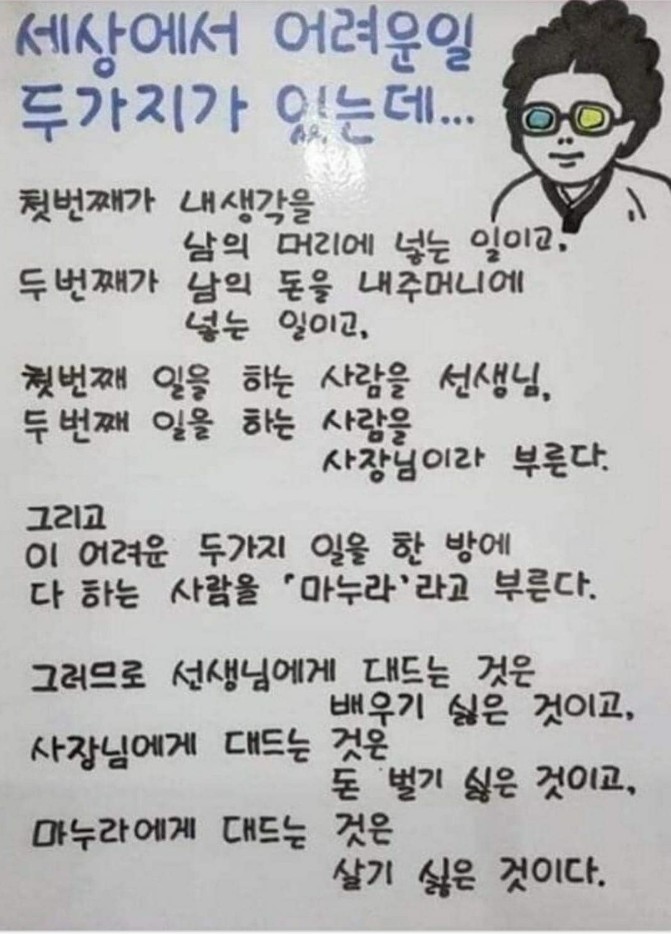 세상에서 어려운일
두가지가 있는데...
첫번째가 내생각을
남의 머리에 넣는 일이고,
두번째가 남의 돈을 내주머니에
넣는 일이고,
첫번째 일을 하는 사람을 선생님,
두번째 일을 하는 사람을
사장님이라 부른다.
그리고
이 어려운 두가지 일을 한 방에
다 하는 사람을 '마누라'라고 부른다.
그러므로 선생님에게 대드는 것은
배우기 싫은 것이고,
사장님에게 대드는 것은
돈 벌기 싫은 것이고,
마누라에게 대드는 것은
살기 싫은 것이다.